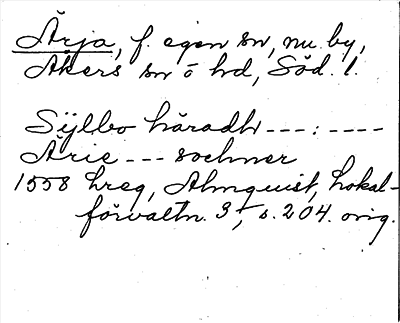 Ärja, f. egen sn, nu by,
Åkers sn o hd, Söd. l.
Sylbo häradh ---:----
Ärie --- sochner
1558 hreg, Almquist, Lokal-
förvaltn. 3, s. 204. orig.